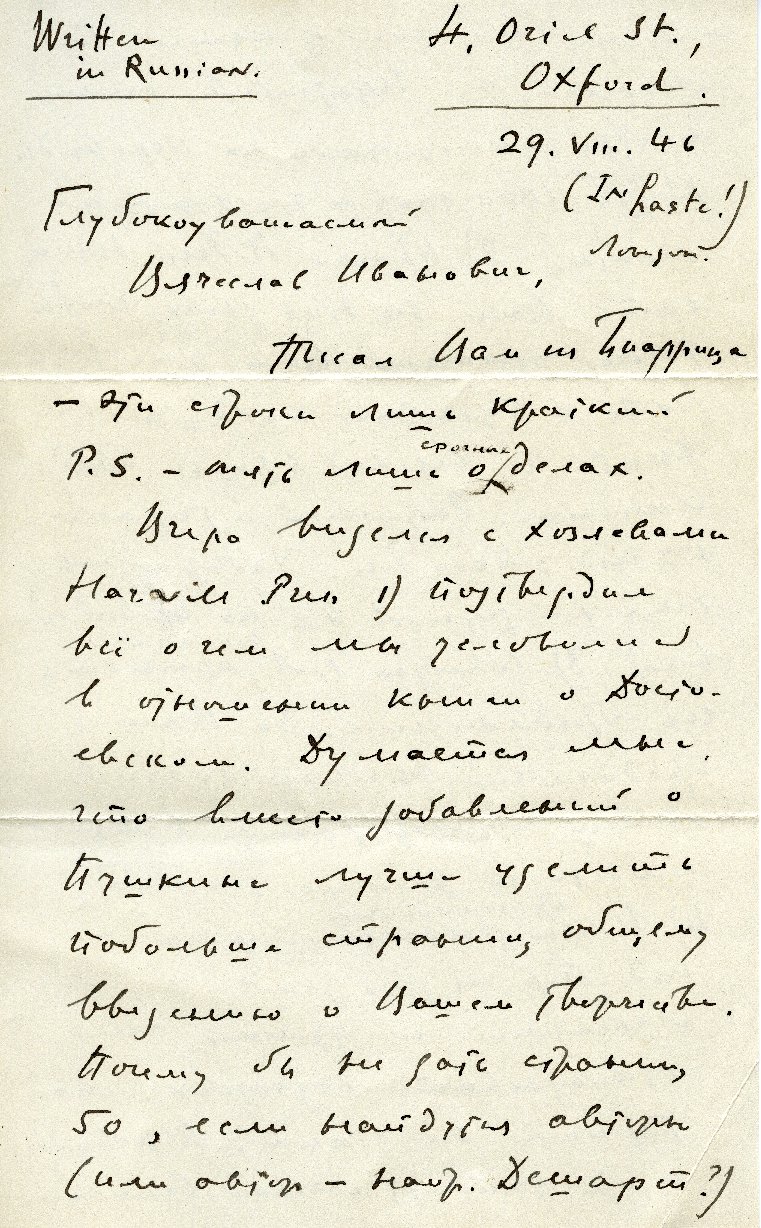 Written
in Russian.
4, Oriel St.,
Oxford.
29. VIII. 46
(In haste!)
Лондон.
Глубокоуважаемый
Вячеслав Иванович,
Писал Вам из Биаррица
– эти строки лишь краткий
P.S. – опять лишь о срочных делах.
Вчера виделся с хозяевами
Harvill Press 1) подтвердил
всё о чем мы условились
в отношении книги о Досто-
евском. Думается мне,
что вместо добавлений о
Пушкине лучше уделить
побольше страниц общему
введению о Вашем творчестве.
Почему бы не дать страниц
50, если найдутся авторы
(или автор – напр. Дешарт?)